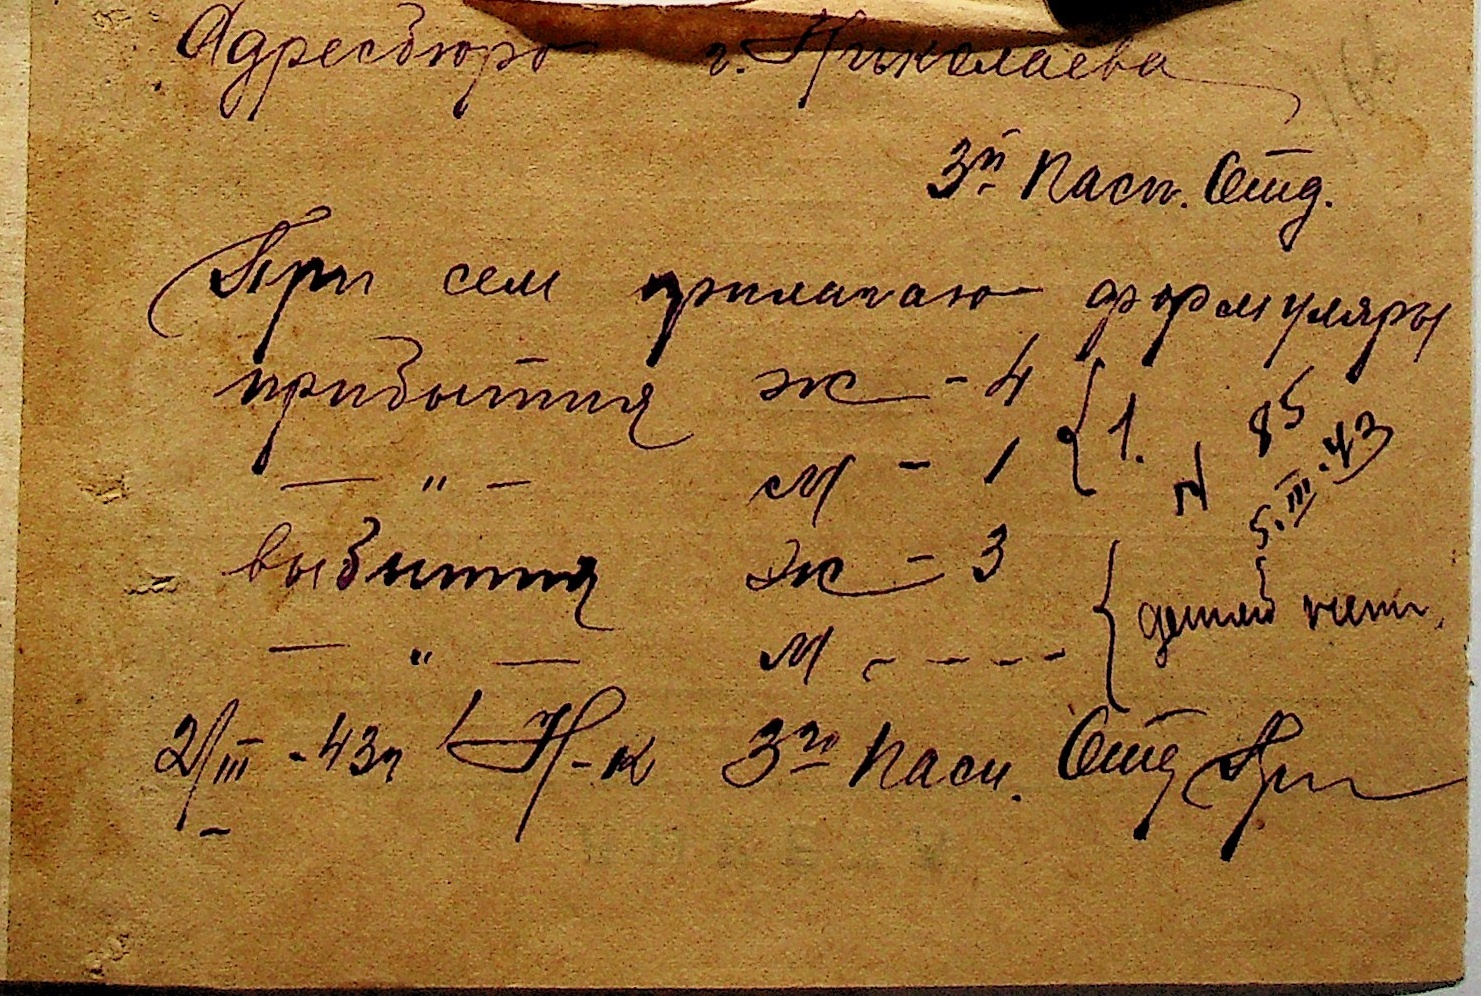 Адресбюро г. Николаева
3й Пасп. Отд.
При сем прилагаю формуляры
прибытия ж - 4
— " — м - 1 { 1.
N 85
5.III.43
выбытия ж - 3
— " — м - - - - { детей нет.
2/III - 43г Н-к 3го Пасп. Отд